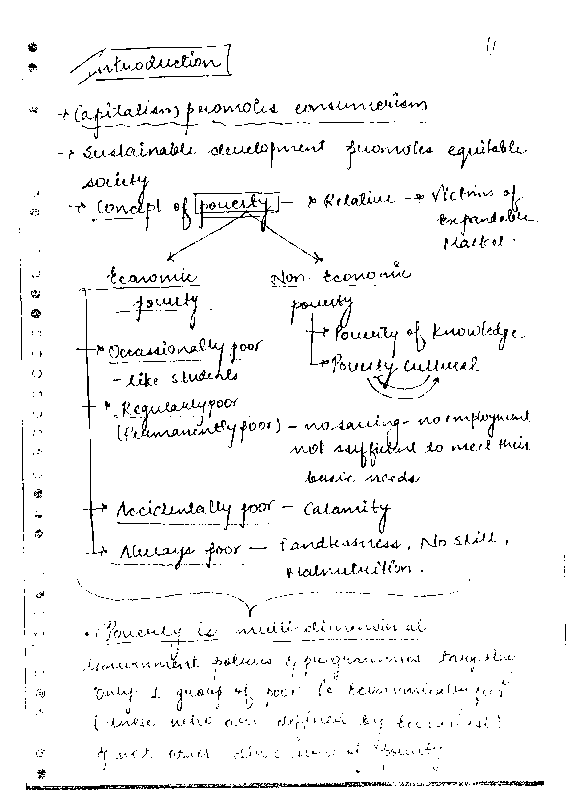 Introduction
→ (Capitalism) promotes consumerism
→ Sustainable development promotes equitable
society
→ Concept of poverty → Relative → Victims of
Expandable
Market.
Economic
poverty
Non Economic
poverty
→ Poverty of Knowledge
→ Poverty cultural
→ Occassionally poor
- like students
→ Regularly poor
(Permanently poor) - no saving - no employment
not sufficient to meet their
basic needs
→ Accidentally poor - Calamity
→ Always poor - Landlessness, No skill,
Malnutrition.
• Poverty is multi dimensional
Government policies & programmes
only 1 group of poor ie
(these who are defined by
& not other dimensions of poverty